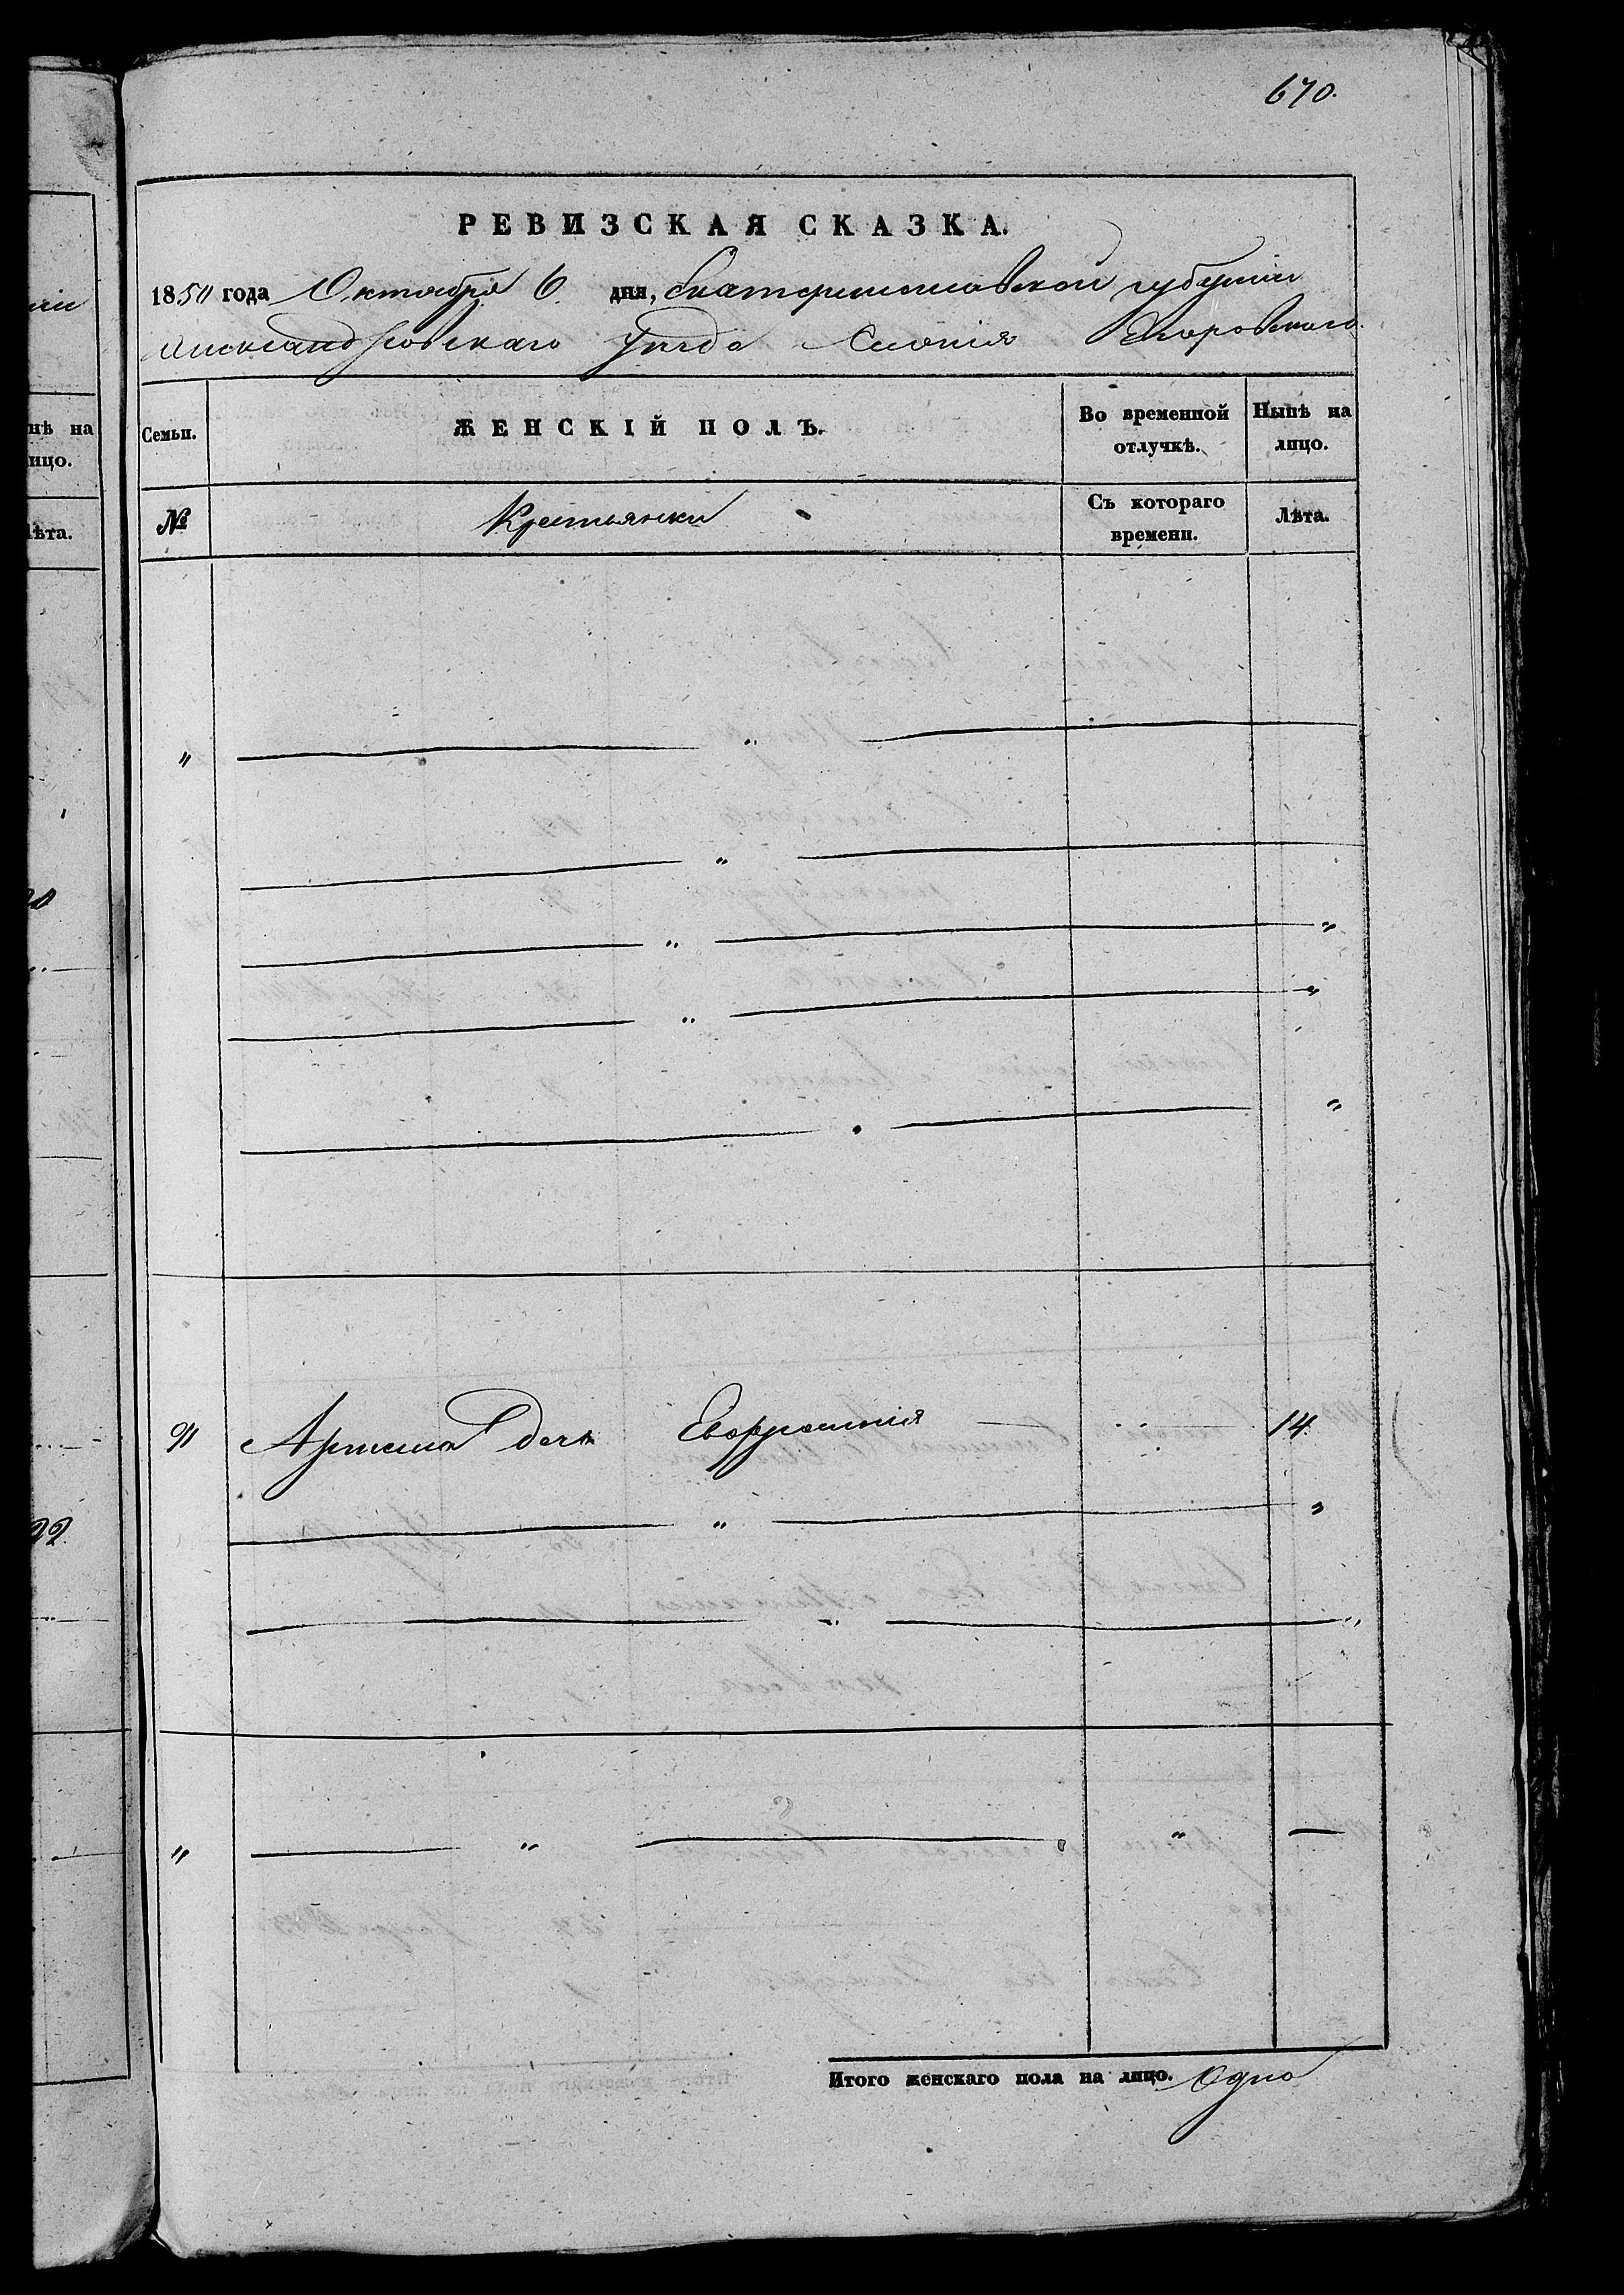 670.
РЕВИЗСКАЯ СКАЗКА.
1850 года Октября 6 дня, Екатеринославской губерніи
Александровскаго уезда Селенія Егоровскаго
Семьи. ЖЕНСКІЙ ПОЛЪ. Во временной отлучкѣ. Нынѣ на лицо.
№ Крестьянки Съ котораго времени. Лѣта.
нѣ на
ицо.
ѣта.
" "
"
" "
" "
"
91 Артема дочь Евфросинія 14
22.
" "
" "
" " "
Итого женскаго пола на лицо. Одна